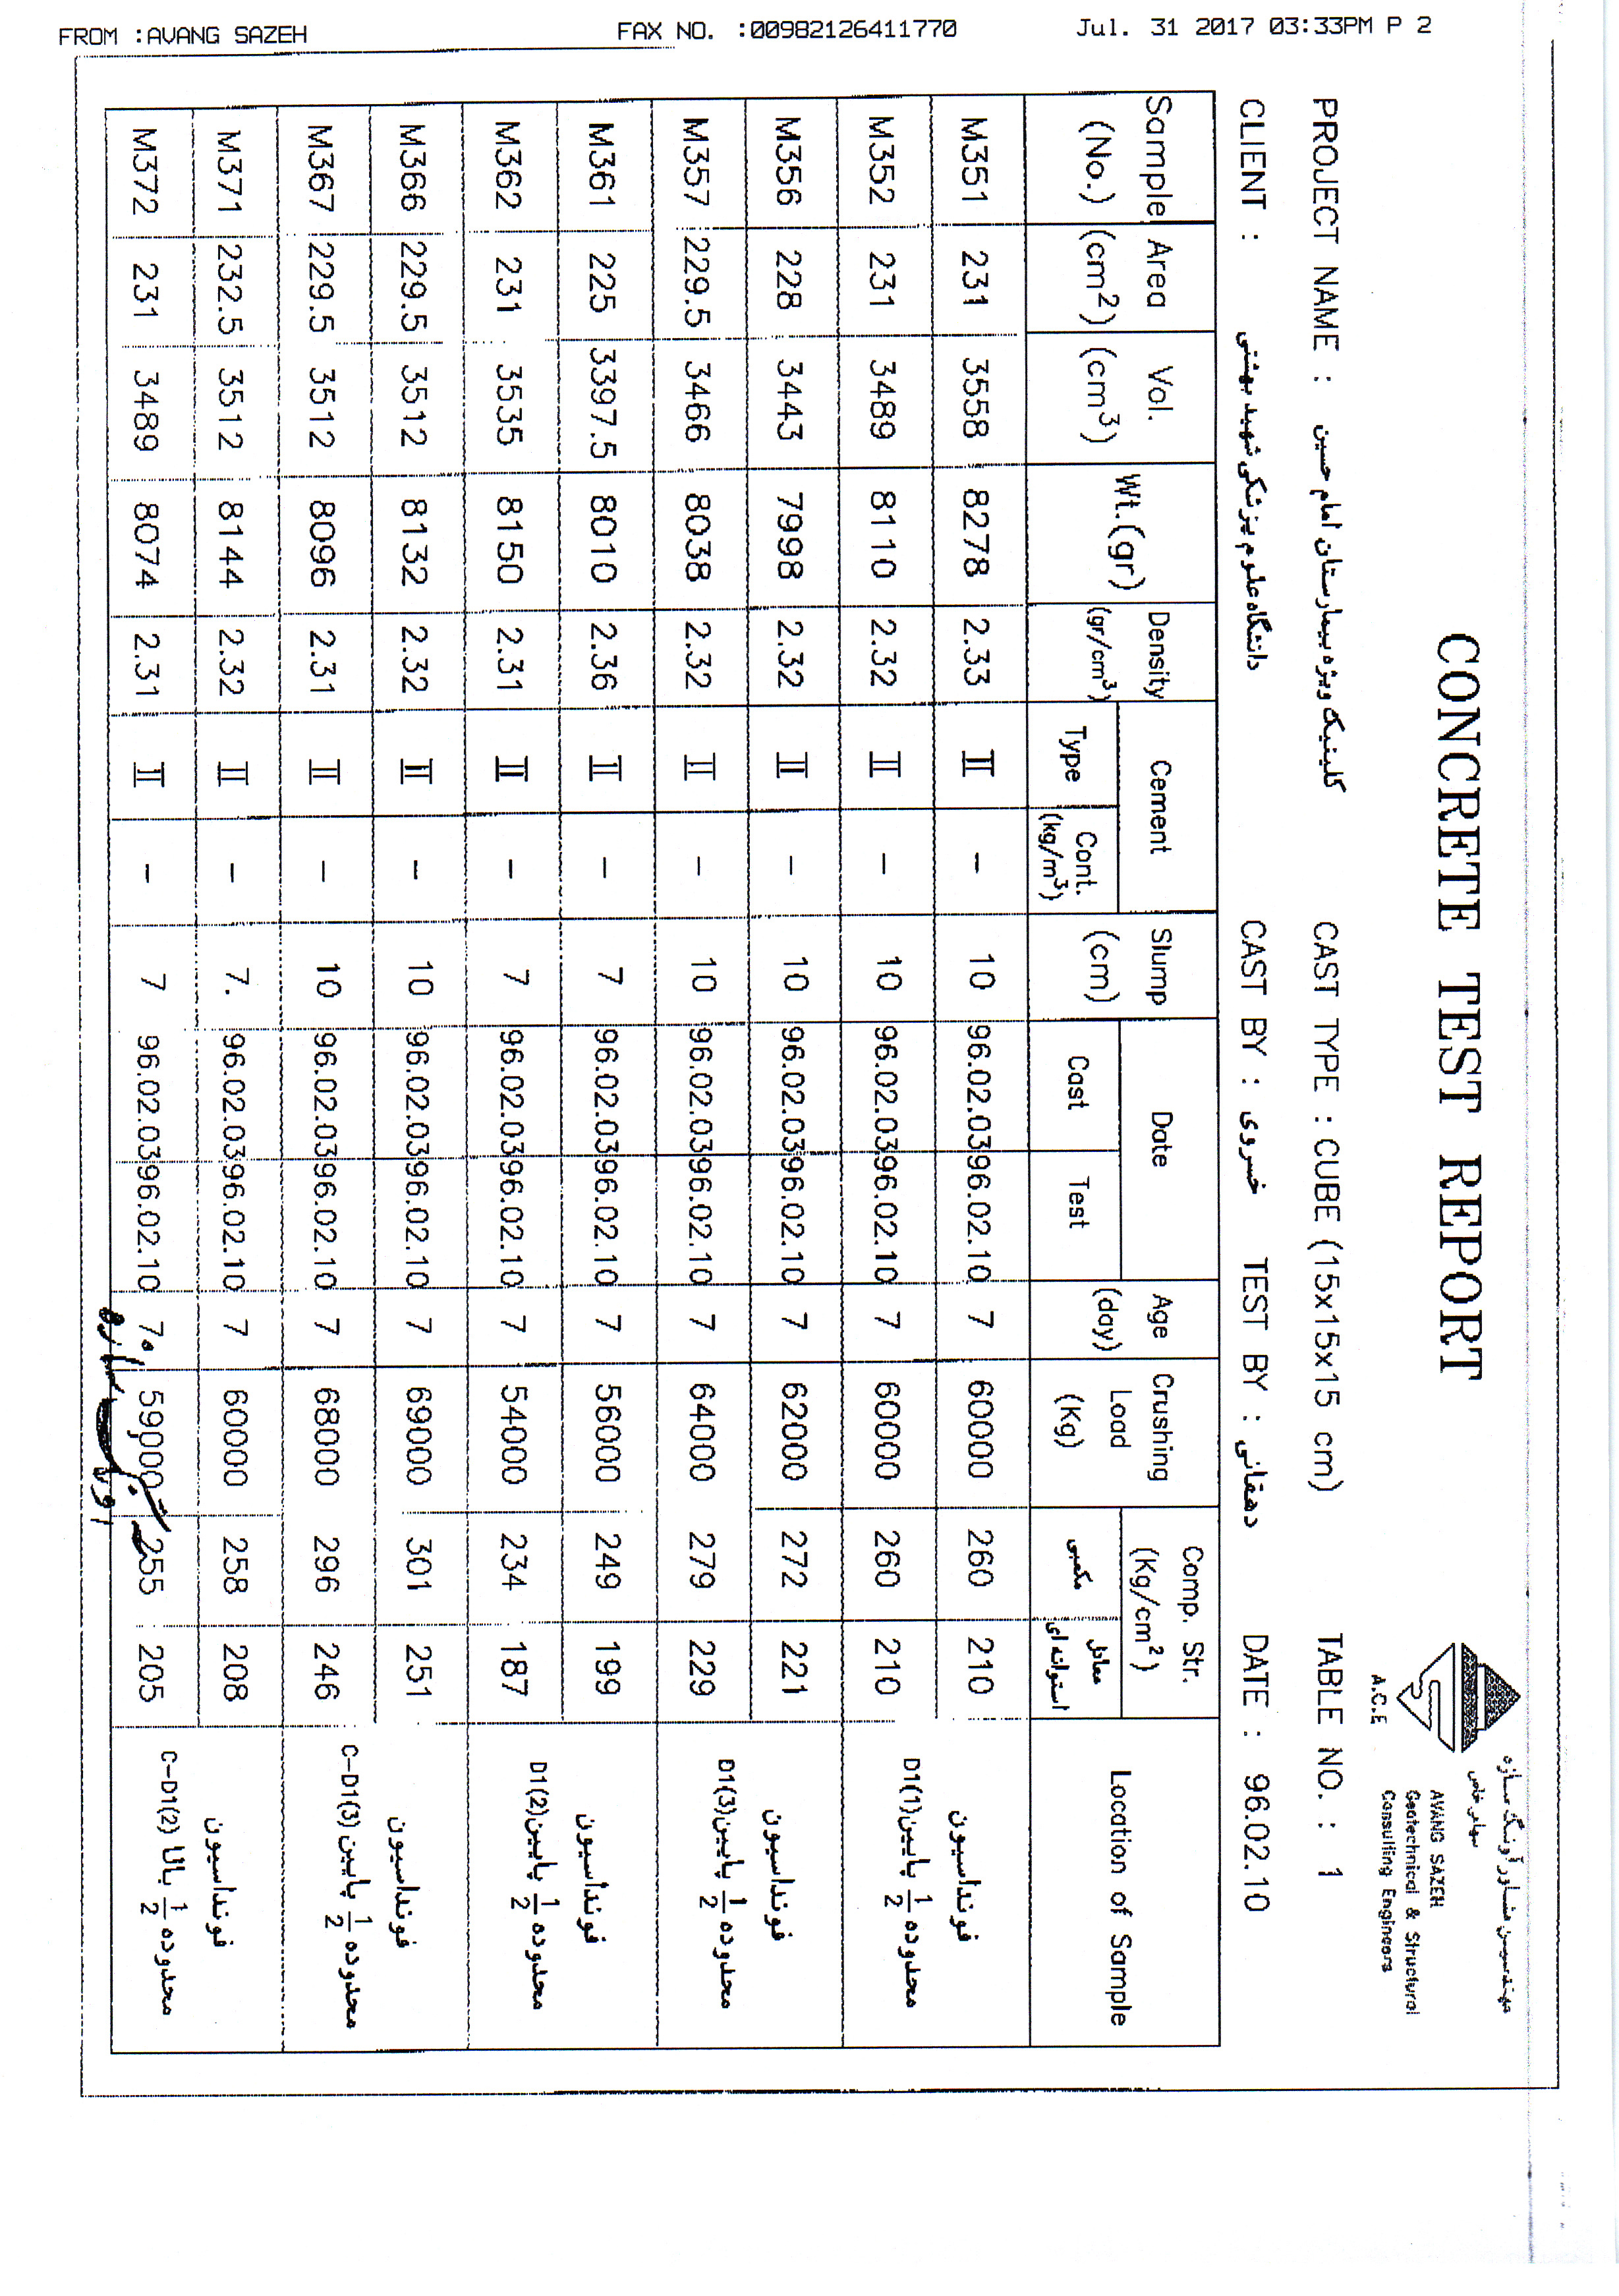 FROM :AVANG SAZEH FAX NO. :00982126411770 Jul. 31 2017 03:33PM P 2
CONCRETE TEST REPORT
مهندسین مشاور آونگ سازه
سهامی خاص
AVANG SAZEH
Geotechnical & Structural
Consulting Engineers
A.C.E
PROJECT NAME : کلینیک ویژه بیمارستان امام حسین CAST TYPE : CUBE (15x15x15 cm) TABLE NO. : 1
CLIENT : دانشگاه علوم پزشکی شهید بهشتی CAST BY : خسروی TEST BY : دهقانی DATE : 96.02.10
Sample (No.) Area (cm²) Vol. (cm³) Wt.(gr) Density (gr/cm³) Cement Type Cont. (kg/m³) Slump (cm) Date Cast Test Age (day) Crushing Load (Kg) Comp. Str. (Kg/cm²) مکعبی معادل استوانه ای Location of Sample
M351 231 3558 8278 2.33 II - 10 96.02.03 96.02.10 7 60000 260 210 فونداسیون
M352 231 3489 8110 2.32 II - 10 96.02.03 96.02.10 7 60000 260 210 محدوده 1/2 پایین D1(1)
M356 228 3443 7998 2.32 II - 10 96.02.03 96.02.10 7 62000 272 221 فونداسیون
M357 229.5 3466 8038 2.32 II - 10 96.02.03 96.02.10 7 64000 279 229 محدوده 1/2 پایین D1(3)
M361 225 3397.5 8010 2.36 II - 7 96.02.03 96.02.10 7 56000 249 199 فونداسیون
M362 231 3535 8150 2.31 II - 7 96.02.03 96.02.10 7 54000 234 187 محدوده 1/2 پایین D1(2)
M366 229.5 3512 8132 2.32 II - 10 96.02.03 96.02.10 7 69000 301 251 فونداسیون
M367 229.5 3512 8096 2.31 II - 10 96.02.03 96.02.10 7 68000 296 246 محدوده 1/2 پایین C-D1(3)
M371 232.5 3512 8144 2.32 II - 7. 96.02.03 96.02.10 7 60000 258 208 فونداسیون
M372 231 3489 8074 2.31 II - 7 96.02.03 96.02.10 7 59000 255 205 محدوده 1/2 بالا C-D1(2)